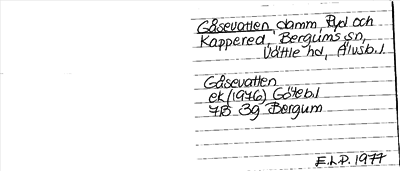 Gåsevatten damm, Ryd och
Kappered, Bergums sn,
Vättle hd, Älvsb.l.
Gåsevatten
ek (1976) Göteb.l
7B 3g Bergum
E.L.P. 1977